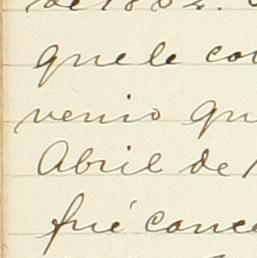 de 1882.
que le co
venio qu
Abril de 1
fué conce